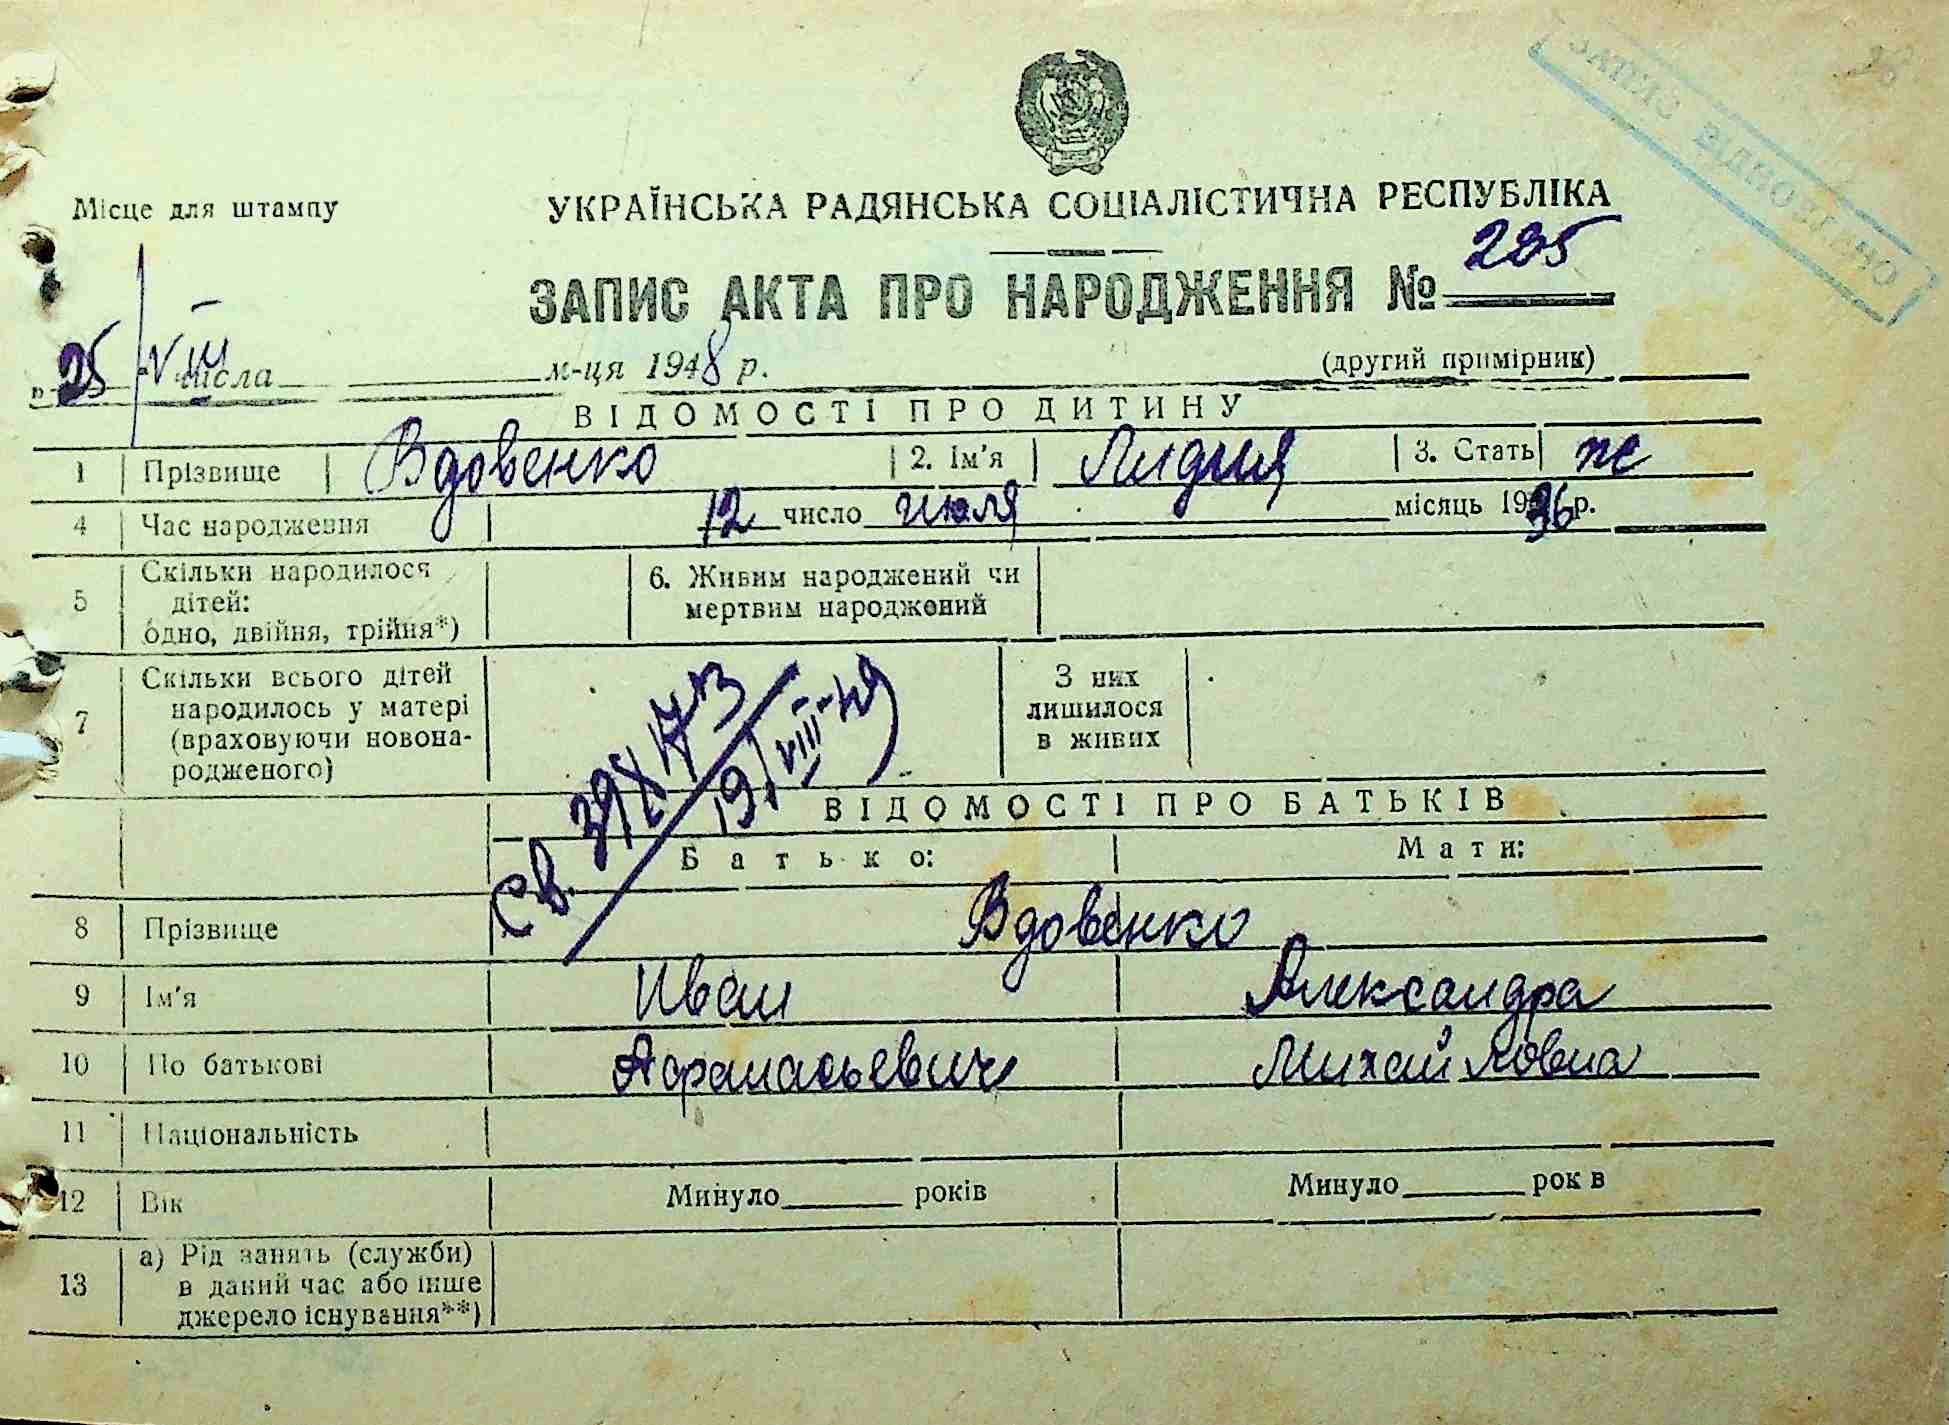 Місце для штампу
УКРАЇНСЬКА РАДЯНСЬКА СОЦІАЛІСТИЧНА РЕСПУБЛІКА
ЗАПИС АКТА ПРО НАРОДЖЕННЯ № 205
„25/VIII числа м-ця 1948 р.
(другий примірник)
ВІДОМОСТІ ПРО ДИТИНУ
1 Прізвище Вдовенко 2. Ім'я Лидия 3. Стать ж
4 Час народження 12 число июля місяць 1936 р.
5 Скільки народилося дітей: одно, двійня, трійня*) 6. Живим народжений чи мертвим народжений
7 Скільки всього дітей народилось у матері (враховуючи новонародженого) З них лишилося в живих
Св. 398173
19/VIII-49
ВІДОМОСТІ ПРО БАТЬКІВ
Батько: Мати:
8 Прізвище Вдовенко
9 Ім'я Иван Александра
10 По батькові Афанасьевич Михайловна
11 Національність
12 Вік Минуло років Минуло рок в
13 а) Рід занять (служби) в даний час або інше джерело існування**)